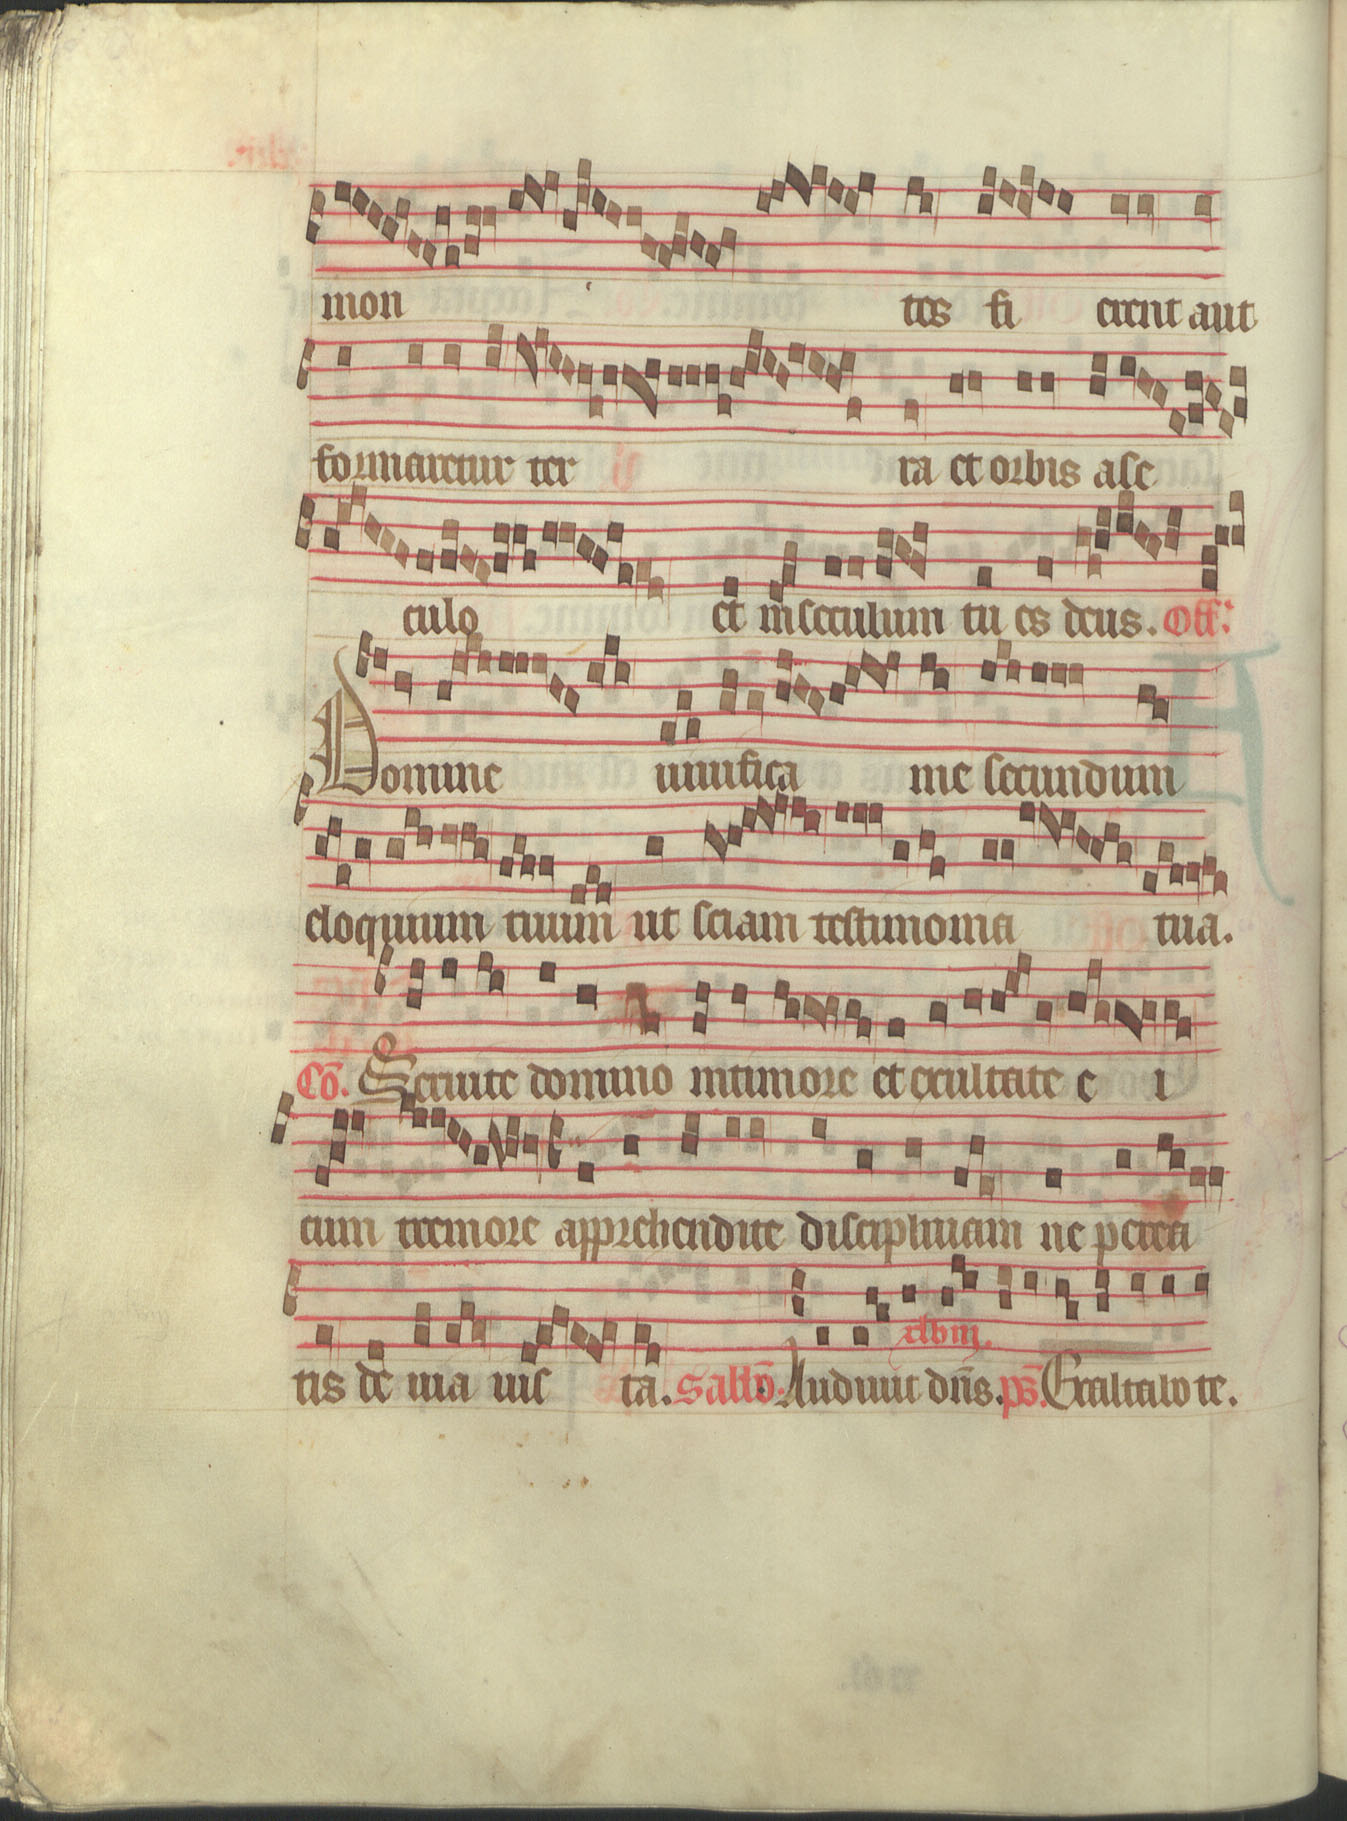 mon tes fi erent aut
formaretur ter ra et orbis a se
culo et in seculum tu es deus. Off.
Domine uiuifica me secundum
eloquium tuum ut sciam testimonia tua.
Cō. Seruite domino in timore et exultate e i
cum tremore apprehendite disciplinam ne perea
tis de uia uis ta. Sabbō. Audiuit dn̄s. ps̄. Exaltabo te.